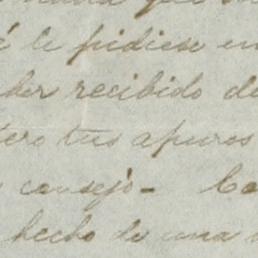 le pidiese en
ber recibido de
tero tus apuros
consejo-
hecho de una